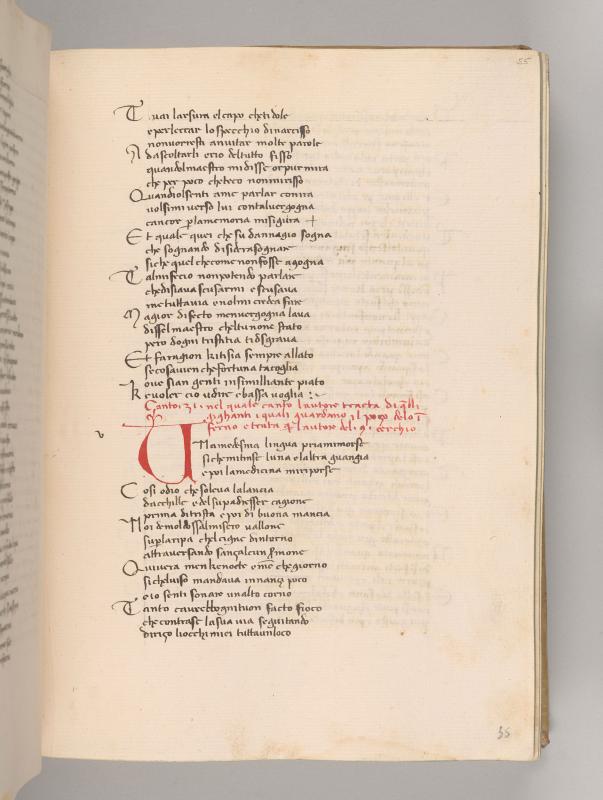 55
Tu ai larsura el capo che ti dole
e per leccar lo specchio di narcisso
non vorresti anvitar molte parole
Ad ascoltarli ero del tutto fisso
quandol maestro mi disse or pur mira
che per poco che teco non mirisso
Quandio l senti a me parlar con ira
volsimi verso lui con tal vergogna
cancor per la memoria mi si gira
Et quale quei che su dannagio sogna
che sognando disidera sognare
si che quel che come non fosse agogna
Tal mi fecio non potendo parlare
che disiava scusarmi e scusava
me tuttavia e nol mi credea fare
Magior difecto men vergogna lava
disse l maestro chel tu non e stato
pero dogni tristitia ti disgrava
Et fa ragion kiti sia sempre allato
se cosavien che fortuna tacoglia
ove sian genti in simillante piato
Ke voler cio udire e bassa voglia
Canto 31 nel quale canto lautore tracta di
gighanti i quali guardano il poço delo i
ferno e tratta lautore del 9 cerchio
v
Una medesma lingua pria mi morse
si che mi tinse luna e laltra guangia
e poi la medicina mi riporse
Cosi odio che soleva la lancia
dachille e del su padre esser cagione
prima di trista e poi di buona mancia
Noi demo l dosso al misero vallone
su per la ripa chel cigne dintorno
attraversando sança alcun sermone
Quivi era men ke nocte e men che giorno
si chel viso mandava innançi poco
e io senti sonare un alto corno
Tanto cavrebbe ognituon facto fioco
che contra se la sua via seguitando
diriço li occhi miei tutta un loco
55